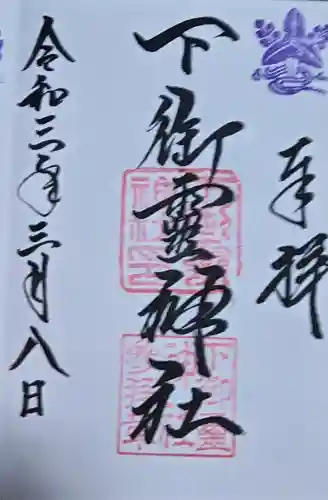 奉拝
下御靈神社
令和三年三月八日